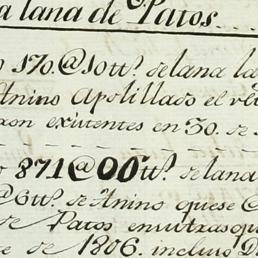 a lana de Patos
170.@10tt.º de lana la
Anino Apolillado el
existentes en 30. de
871@00tt.º de lana
@6tt.º de Anino que se
de Patos en
de 1806. incluso